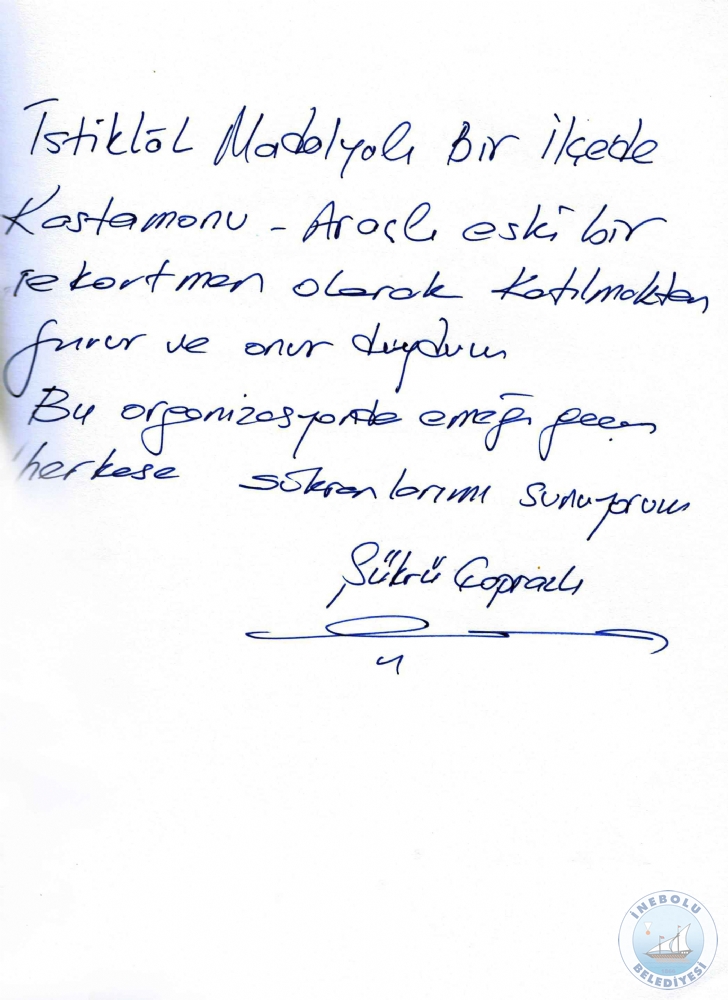 İstiklâl Madalyalı Bir ilçede
Kastamonu - Araçlı eski bir
rekortmen olarak katılmaktan
gurur ve onur duydum
Bu organizasyonda emeği geçen
herkese şükranlarımı sunuyorum
Şükrü Çaprazlı
İNEBOLU
BELEDİYESİ